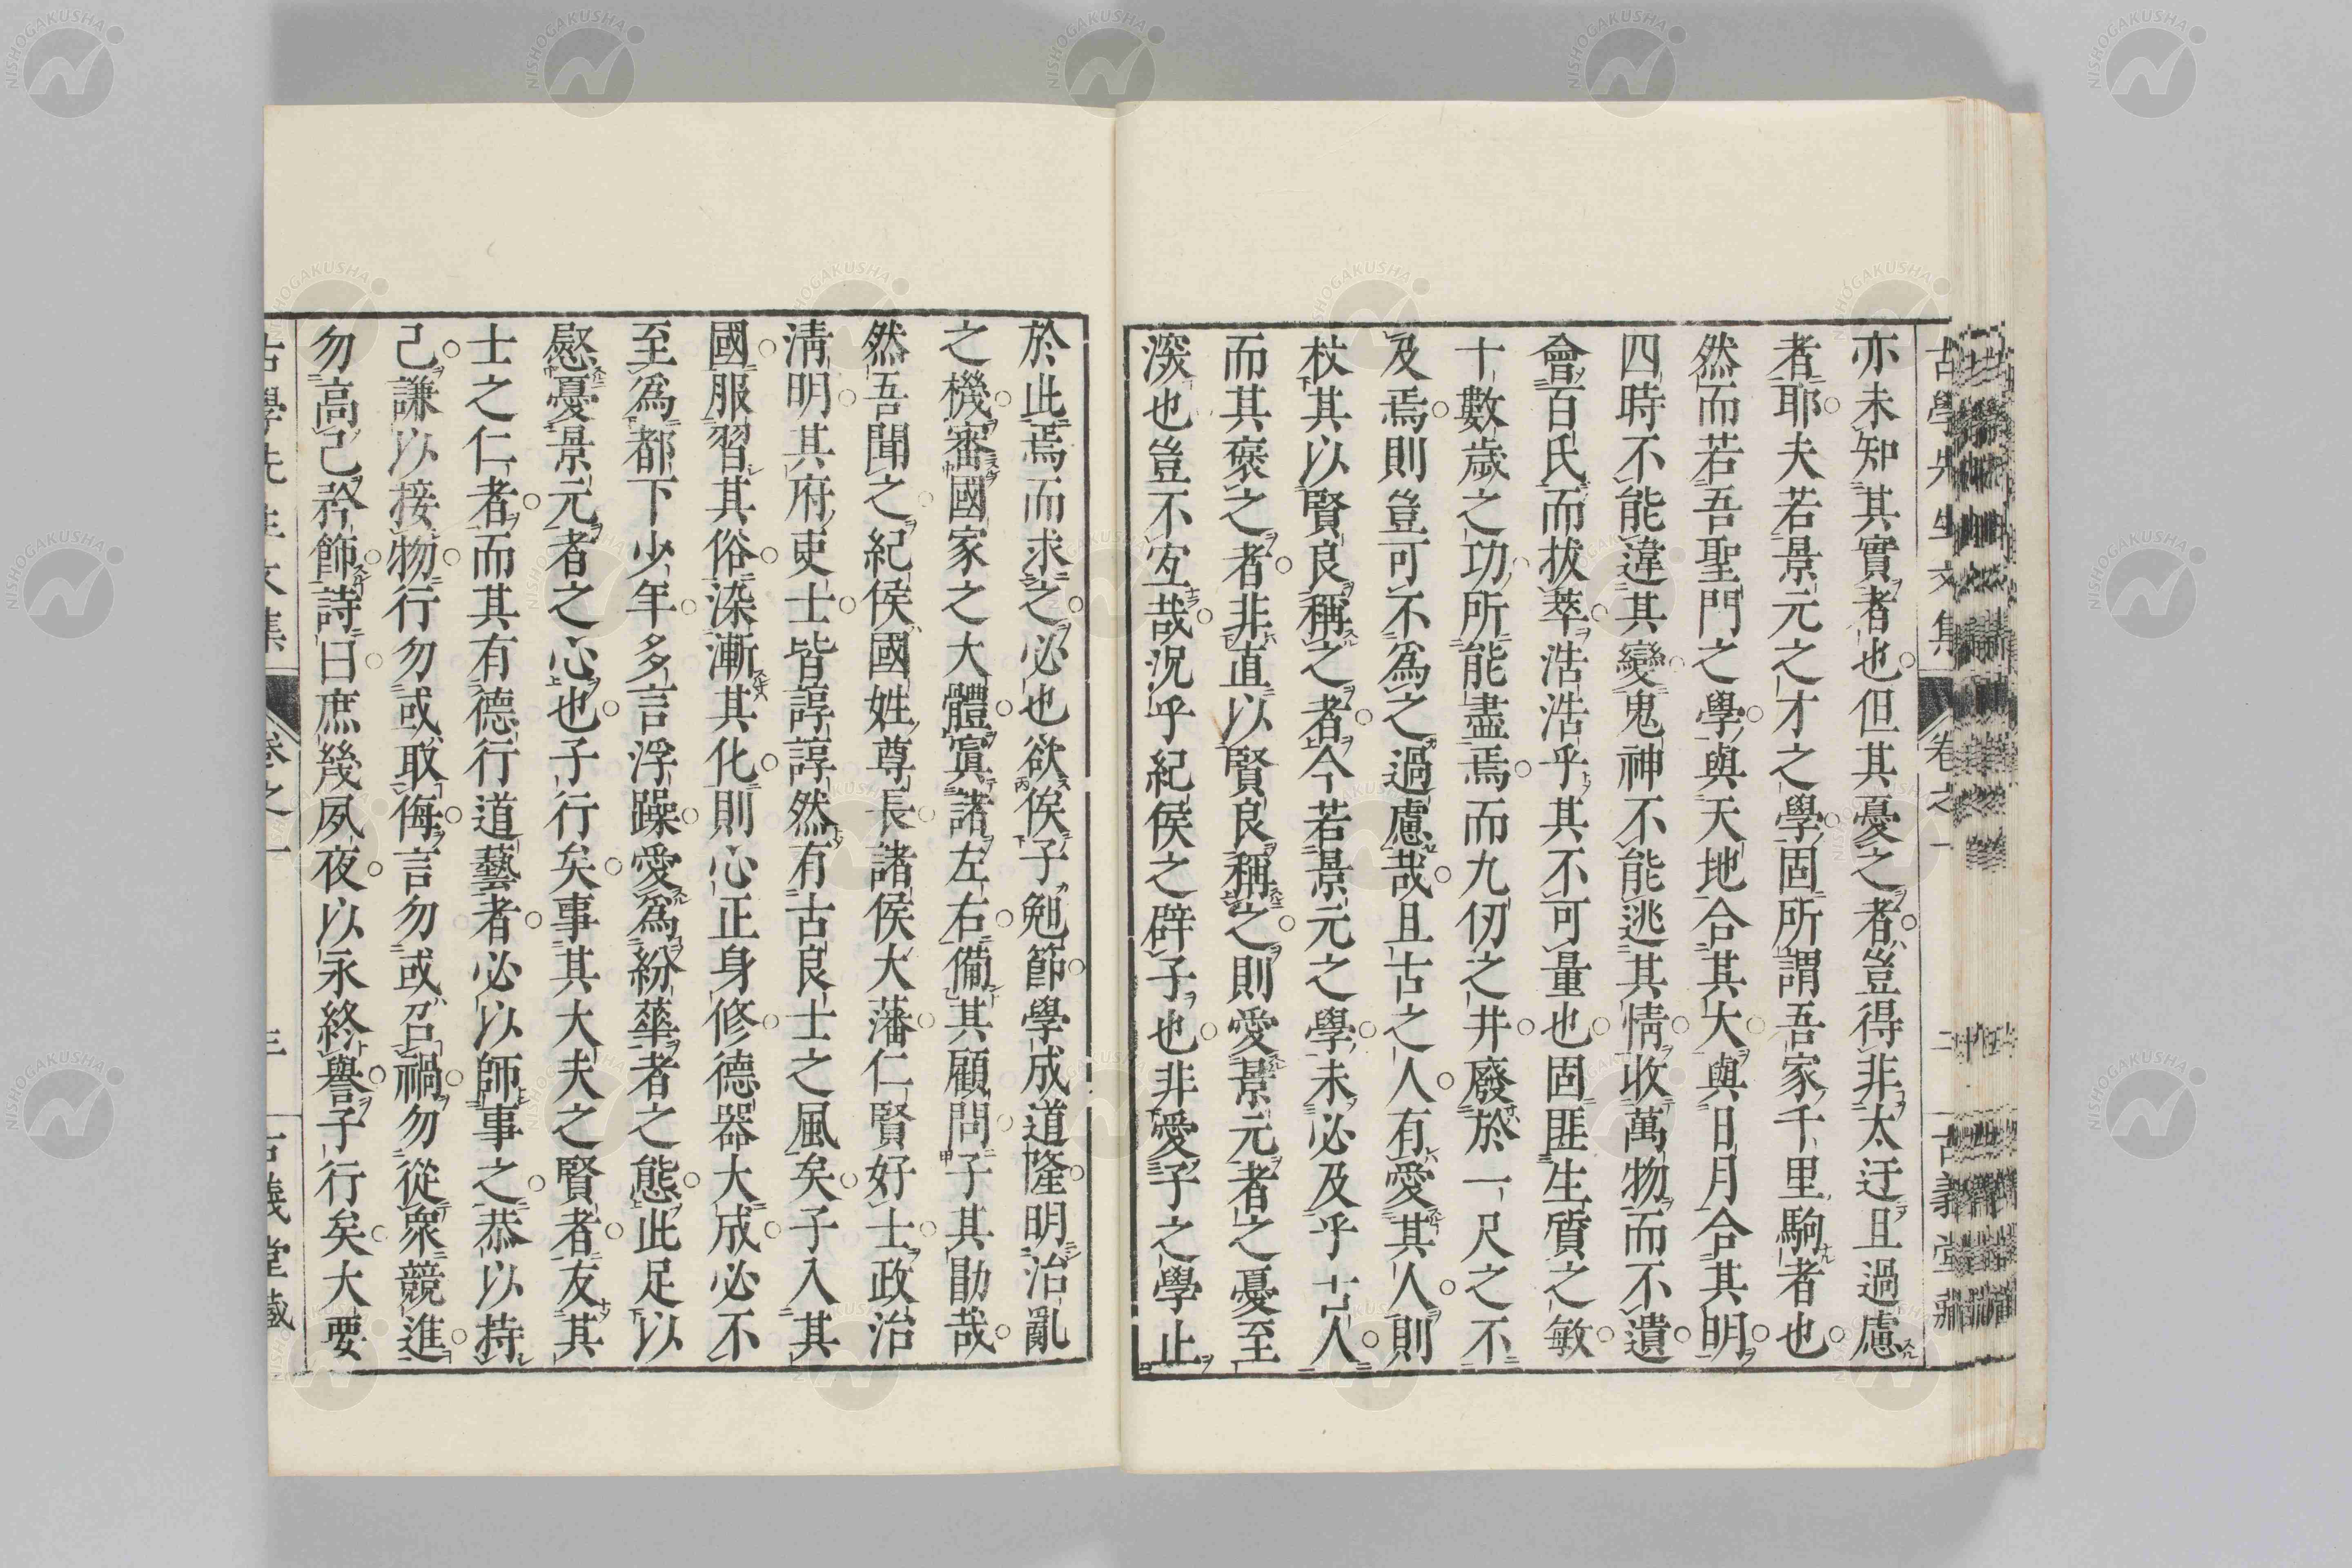 古學先生文集 卷之一 二 古義堂藏
亦未知其實者也但其憂之者豈得非太迂且過慮
者耶夫若景元之才之學固所謂吾家千里駒者也
然而若吾聖門之學與天地合其大與日月合其明
四時不能違其變鬼神不能逃其情收萬物而不遺
會百氏而拔萃浩浩乎其不可量也固匪生質之敏
十數歲之功所能盡焉而九仞之井廢於一尺之不
及焉則豈可不為之過慮哉且古之人有愛其人則
杖其以賢良稱之者今若景元之學未必及乎古人
而其褒之者非直以賢良稱之則愛景元者之憂至
深也豈不宐哉況乎紀侯之辟子也非愛子之學止
於此焉而求之必也欲俟子勉節學成道隆明治亂
之機審國家之大體寘諸左右備其顧問子其勖哉
然吾聞之紀侯國姓尊長諸侯大藩仁賢好士政治
清明其府吏士皆諄諄然有古良士之風矣子入其
國服習其俗染漸其化則心正身修德器大成必不
至為都下少年多言浮躁愛為紛華者之態此足以
慰憂景元者之心也子行矣事其大夫之賢者友其
士之仁者而其有德行道藝者必以師事之恭以持
己謙以接物行勿或取侮言勿或召禍勿從衆競進
勿高己矜飾詩曰庶幾夙夜以永終譽子行矣大要
古學先生文集 卷之一 三 古義堂藏